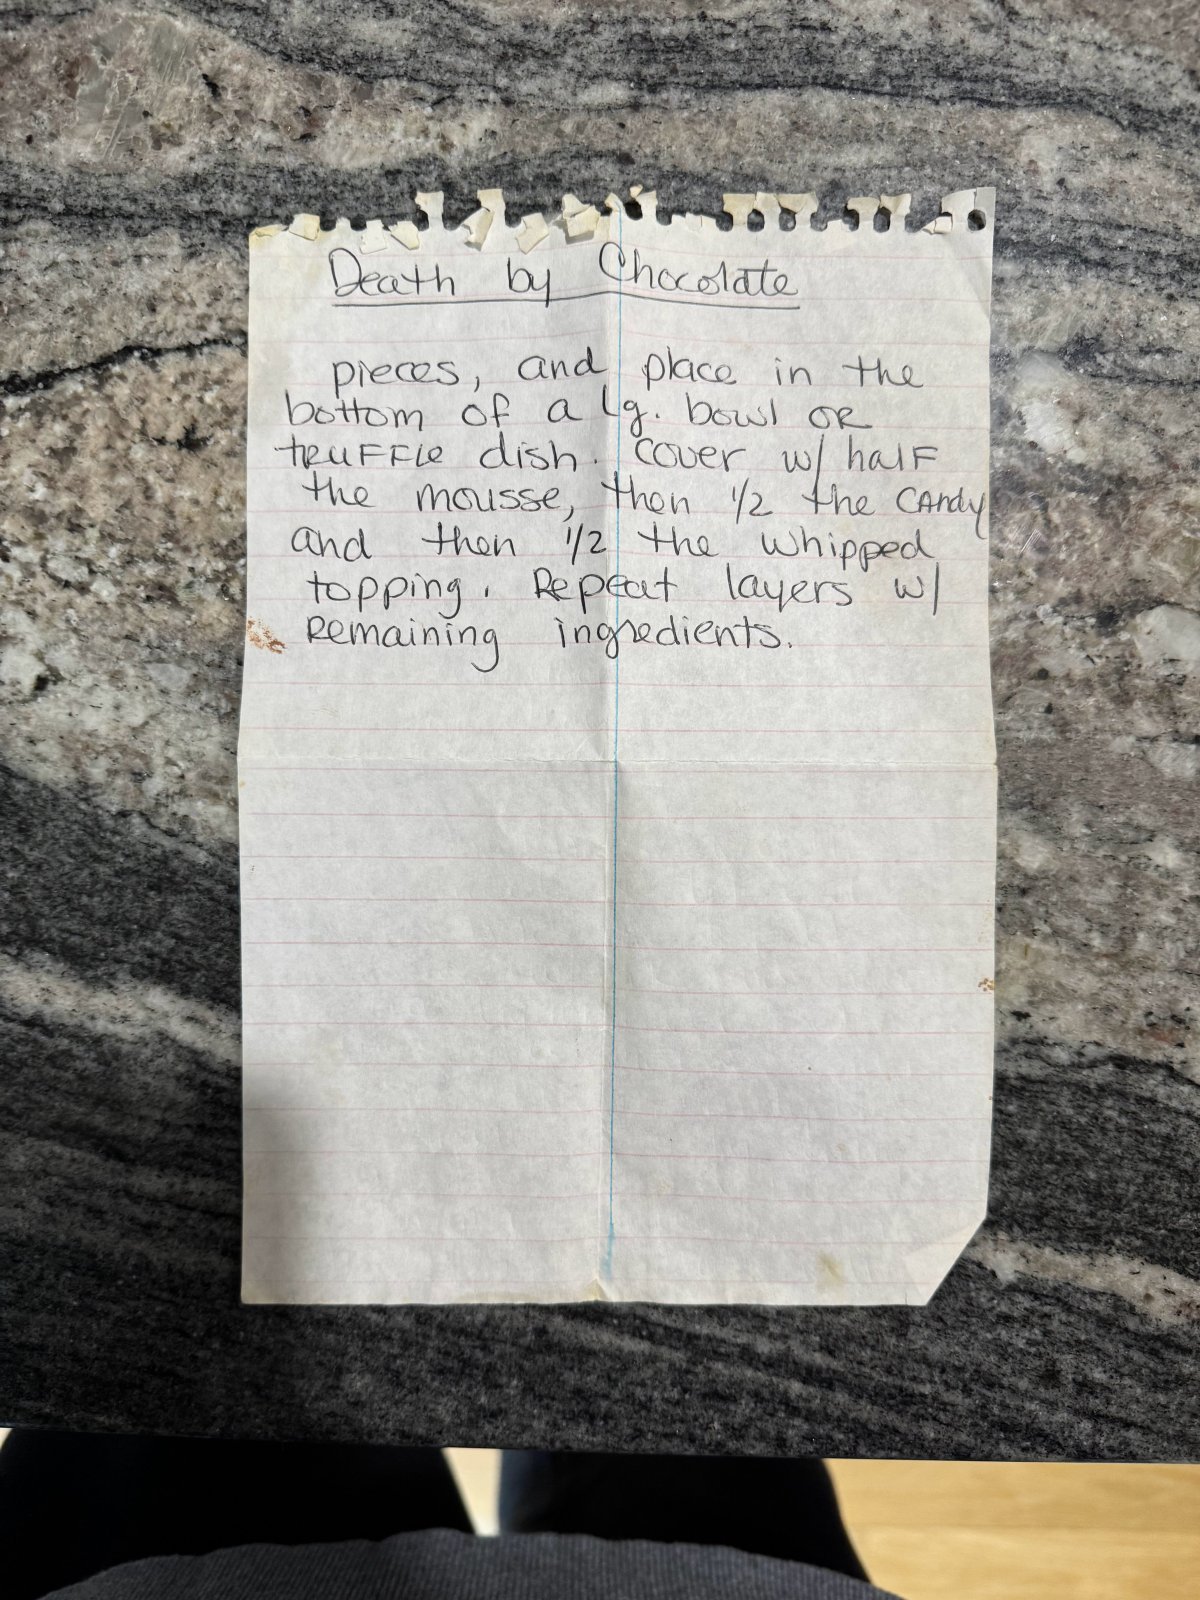 Death by Chocolate
pieces, and place in the
bottom of a lg. bowl OR
truffle dish. Cover w/ half
the mousse, then 1/2 the CANdy
and then 1/2 the whipped
topping. Repeat layers w/
Remaining ingredients.